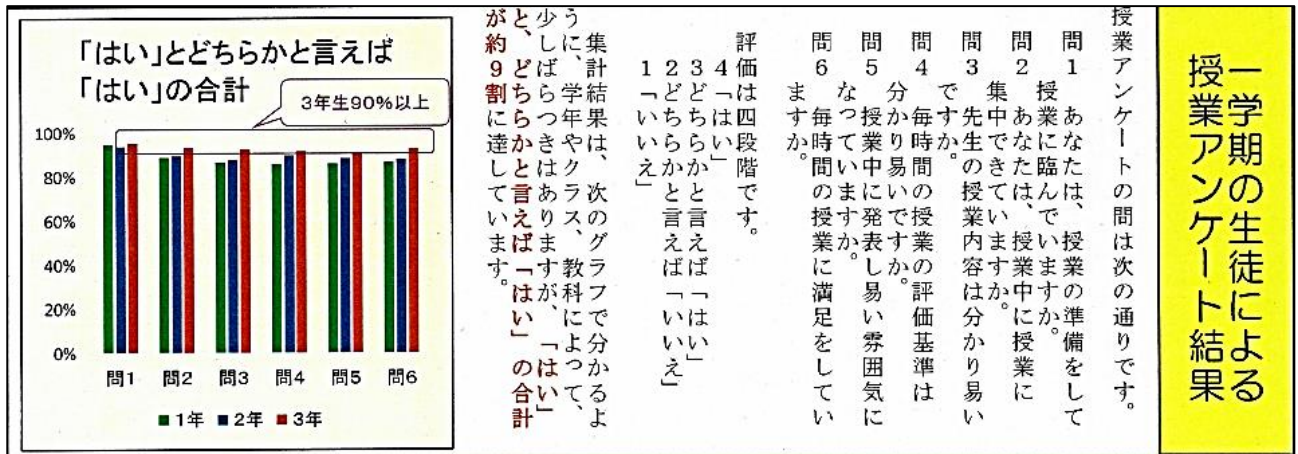 一学期の生徒による
授業アンケート結果
授業アンケートの問は次の通りです。
問1　あなたは、授業の準備をして
授業に臨んでいますか。
問2　あなたは、授業中に授業に
集中できていますか。
問3　先生の授業内容は分かり易い
ですか。
問4　毎時間の授業の評価基準は
分かり易いですか。
問5　授業中に発表し易い雰囲気に
なっていますか。
問6　毎時間の授業に満足をしてい
ますか。
評価は四段階です。
4「はい」
3どちらかと言えば「はい」
2どちらかと言えば「いいえ」
1「いいえ」
集計結果は、次のグラフで分かるよ
うに、学年やクラス、教科によって、
少しばらつきはありますが、「はい」
と、どちらかと言えば「はい」の合計
が約9割に達しています。
「はい」とどちらかと言えば
「はい」の合計
3年生90%以上
100%
80%
60%
40%
20%
0%
問1 問2 問3 問4 問5 問6
1年 2年 3年